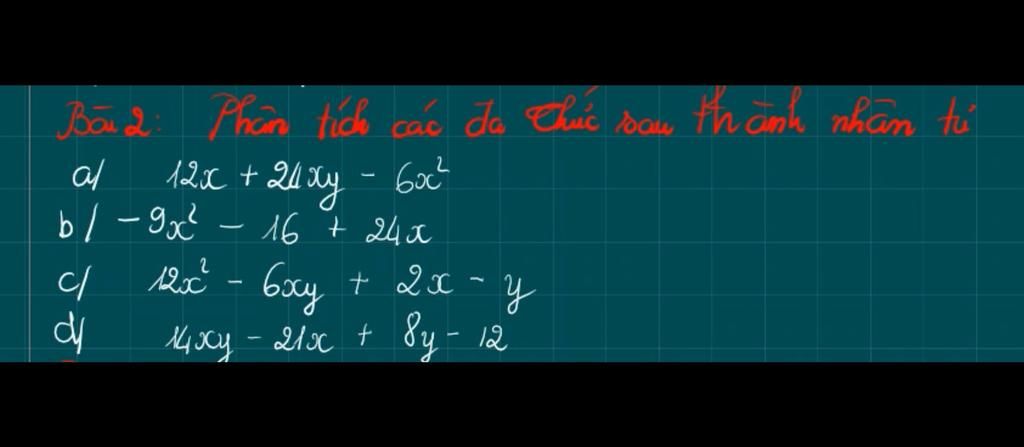 Bài 2: Phân tích các đa thức sau thành nhân tử
a/ 12x + 24xy - 6x²
b/ -9x² - 16 + 24x
c/ 12x² - 6xy + 2x - y
d/ 14xy - 21x + 8y - 12